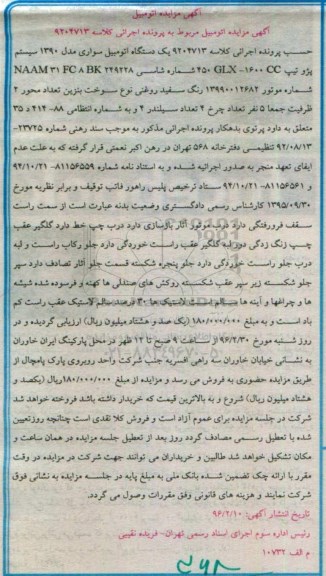 آگهی مزایده اتومبیل
آگهی مزایده اتومبیل مربوط به پرونده اجرائی کلاسه ۹۲۰۴۷۱۳
حسب پرونده اجرائی کلاسه ۹۲۰۴۷۱۳ یک دستگاه اتومبیل سواری مدل ۱۳۹۰ سیستم
پژو تیپ GLX -۱۶۰۰ CC ۴۵۰ شماره شاسی NAAM ۳۱ FC ۸ BK ۲۴۹۲۲۸
شماره موتور ۱۳۹۹۰۰۱۲۶۸۲ رنگ سفید روغنی نوع سوخت بنزین تعداد محور ۲
ظرفیت جمعا ۵ نفر تعداد چرخ ۴ تعداد سیلندر ۴ و به شماره انتظامی ۸۸- ۴۱۲ د ۳۵
متعلق به داود پرتوی بدهکار پرونده اجرائی مذکور به موجب سند رهنی شماره ۲۳۷۲۵-
۹۲/۰۸/۱۳ تنظیمی دفترخانه ۵۶۸ تهران در رهن اکبر نعمتی قرار گرفته که به علت عدم
ایفای تعهد منجر به صدور اجرائیه شده و به استناد نامه شماره ۸۱۱۵۶۵۵۹- ۹۴/۱۰/۲۱
و ۸۱۱۵۶۵۶۱- ۹۴/۱۰/۲۱ ستاد ترخیص پلیس راهور فاتب توقیف و برابر نظریه مورخ
۱۳۹۵/۰۹/۳۰ کارشناس رسمی دادگستری وضعیت بدنه عبارت است از سمت راست
سقف فرورفتگی دارد درب موتور آثار بازسازی دارد درب چپ خط دارد گلگیر عقب
چپ زنگ زدگی دور لبه گلگیر عقب راست خوردگی دارد جلو رکاب راست و لبه
درب جلو راست خوردگی دارد جلو پنجره شکسته قسمت جلو آثار تصادف دارد سپر
جلو شکسته زیر سپر عقب شکسته روکش های صندلی ها کهنه و فرسوده شده شیشه
ها و چراغها و آینه ها سالم است لاستیک ها ۳۰ درصد سالم لاستیک عقب راست کم
باد است و به مبلغ ۱۸۰/۰۰۰/۰۰۰ (یک صد و هشتاد میلیون ریال) ارزیابی گردیده و در
روز شنبه مورخ ۹۶/۲/۳۰ از ساعت ۹ صبح تا ۱۲ ظهر در محل پارکینگ ایران خاوران
به نشانی خیابان خاوران سه راهی افسریه جنب شرکت واحد روبروی پارک پامچال از
طریق مزایده حضوری به فروش می رسد و مزایده از مبلغ ۱۸۰/۰۰۰/۰۰۰ریال (یکصد و
هشتاد میلیون ریال) شروع و به بالاترین قیمت که خریدار داشته باشد فروخته خواهد شد
شرکت در جلسه مزایده برای عموم آزاد است و فروش کلا نقدی است چنانچه روز تعیین
شده با تعطیل رسمی مصادف گردد روز بعد از تعطیل جلسه مزایده در همان ساعت و
مکان تشکیل خواهد شد طالبین و خریداران می توانند جهت شرکت در مزایده در وقت
مقرر با ارائه چک تضمین شده بانک ملی به مبلغ پایه در جلسه مزایده به نشانی فوق
شرکت نمایند و هزینه های قانونی وفق مقررات وصول می گردد.
تاریخ انتشار آگهی: ۹۶/۲/۱۰
رئیس اداره سوم اجرای اسناد رسمی تهران- فریده نقیبی
م الف ۱۰۷۳۲